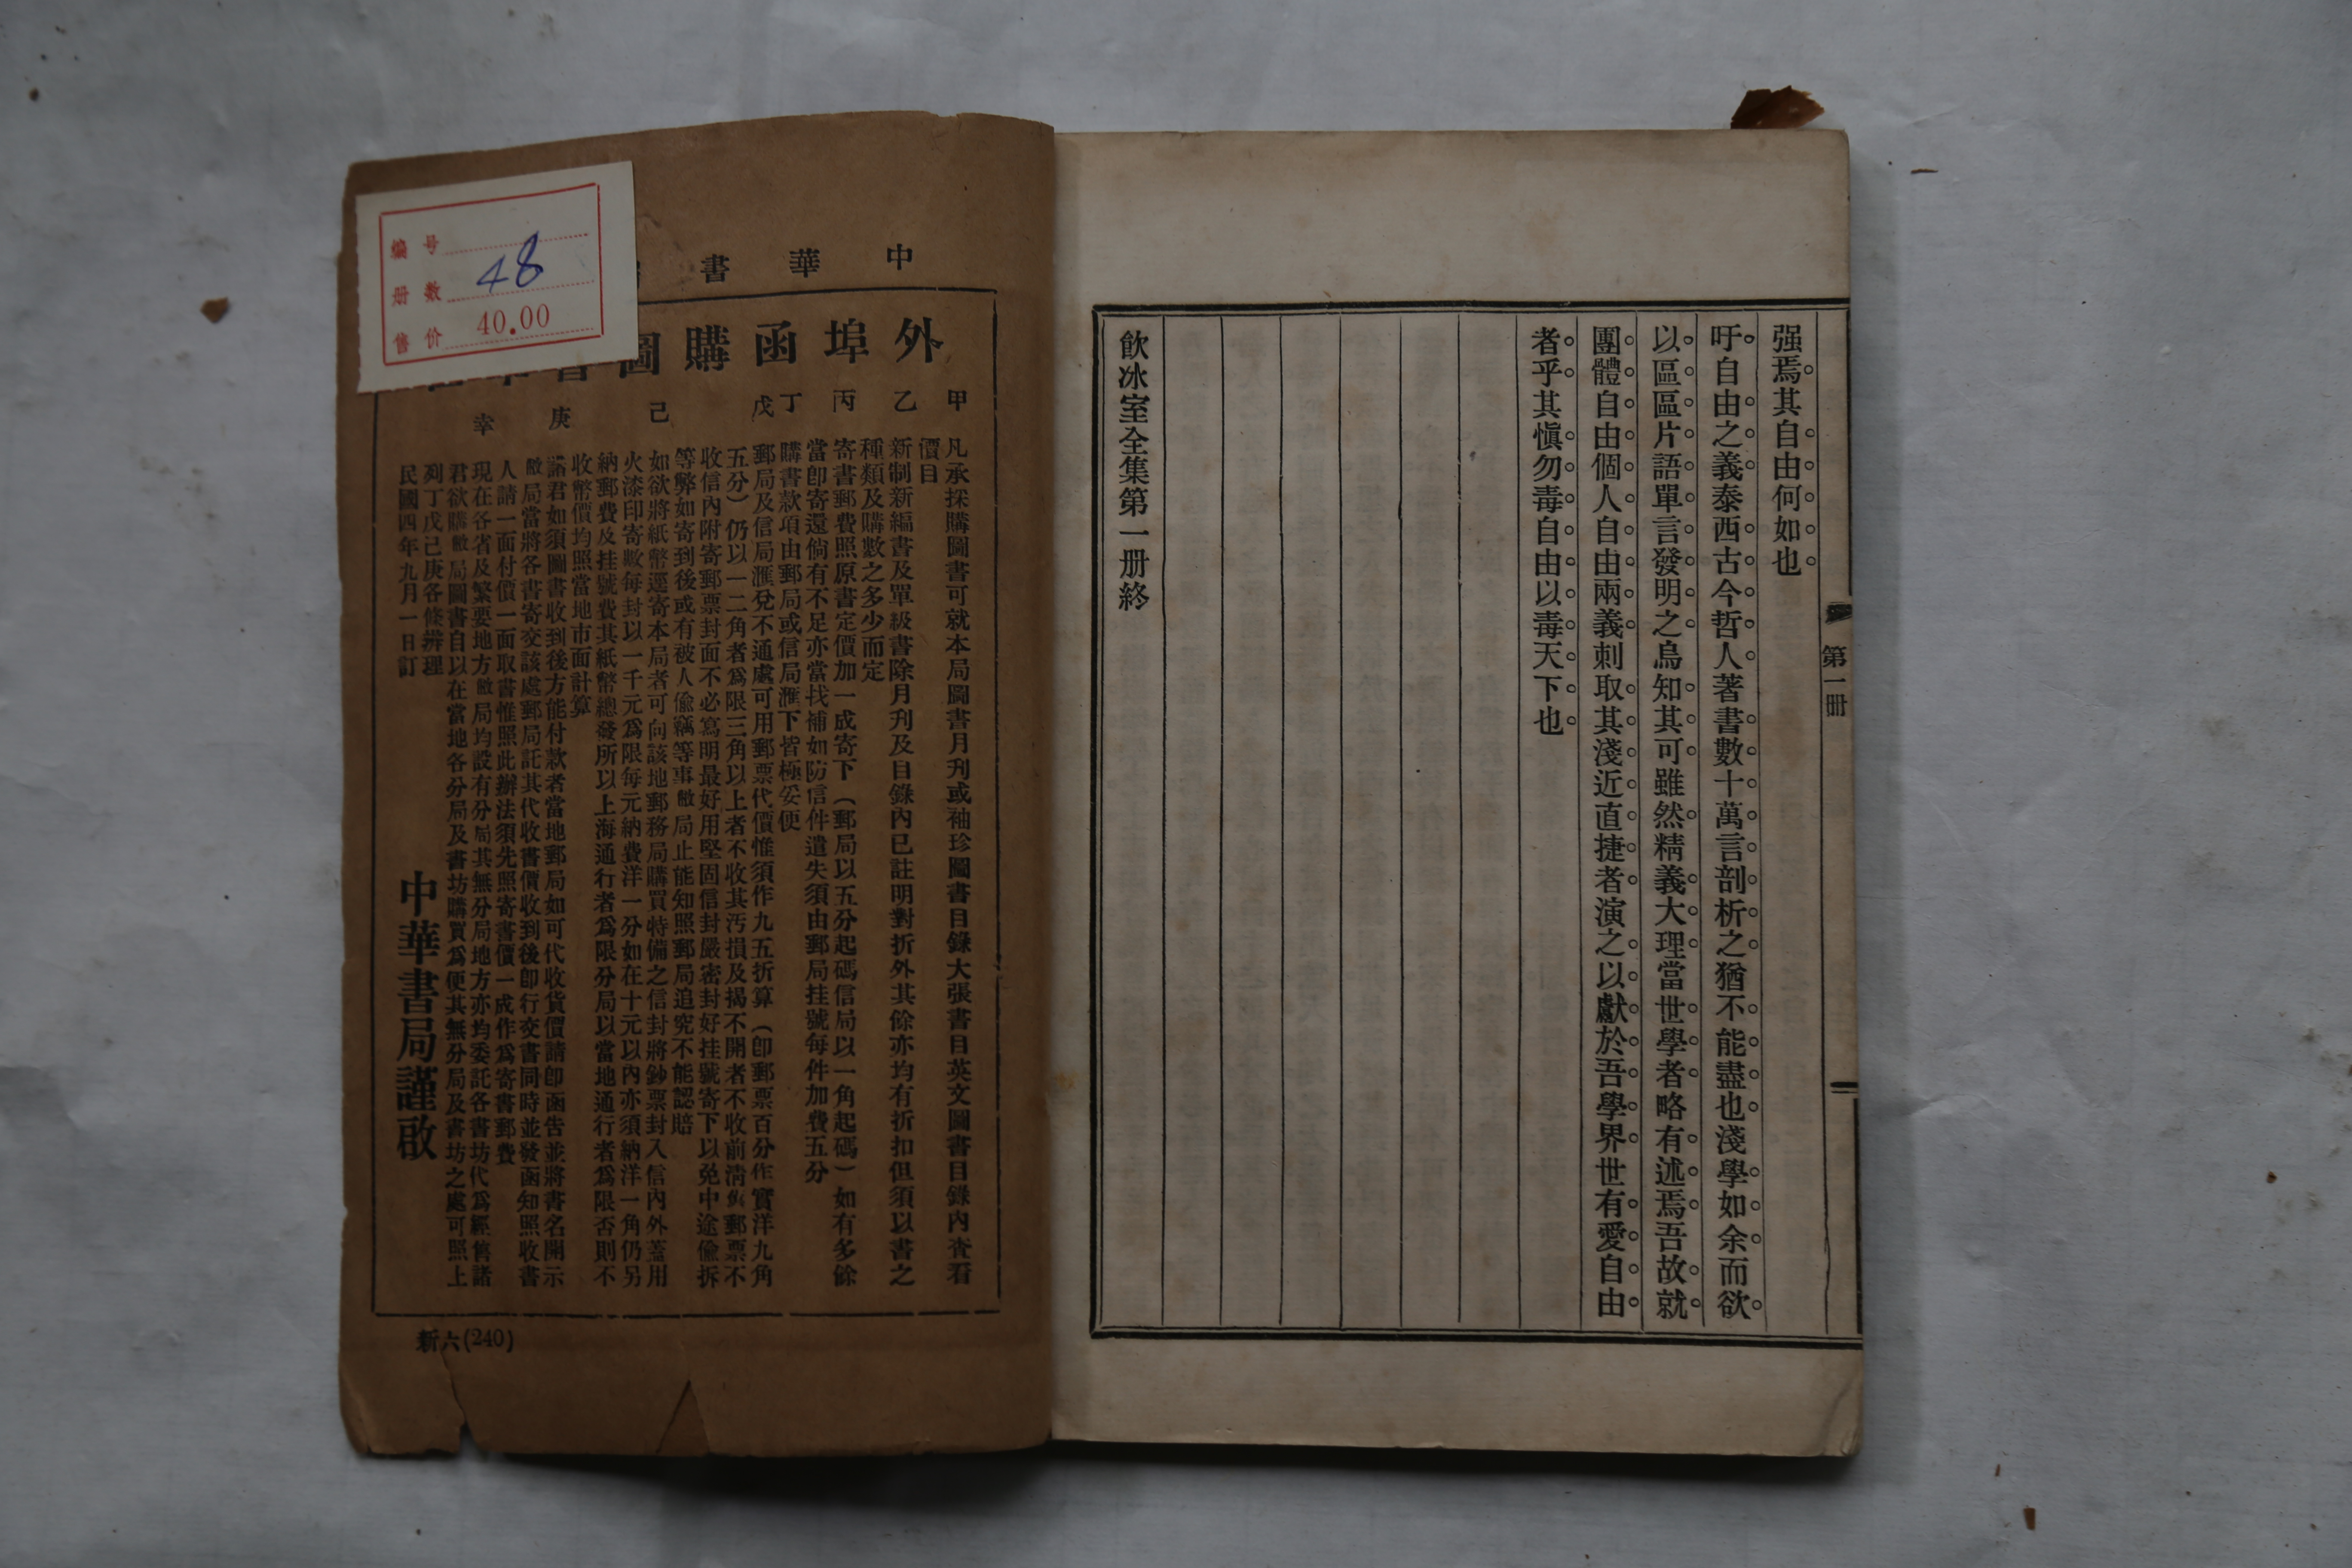 强焉其自由何如也
吁自由之義泰西古今哲人著書數十萬言剖析之猶不能盡也淺學如余而欲
以區區片語單言發明之烏知其可雖然精義大理當世學者略有述焉吾故就
團體自由個人自由兩義刺取其淺近直捷者演之以獻於吾學界世有愛自由
者乎其愼勿毒自由以毒天下也
飲冰室全集第一册終
第一册
中華書
外埠函購圖書
甲 凡承採購圖書可就本局圖書月刊或袖珍圖書目錄大張書目英文圖書目錄內查看
價目
乙 新制新編書及單級書除月刋及目錄內已註明對折外其餘亦均有折扣但須以書之
種類及購數之多少而定
丙 寄書郵費照原書定價加一成寄下（郵局以五分起碼信局以一角起碼）如有多餘
當卽寄還倘有不足亦當找補如防信件遺失須由郵局挂號每件加費五分
丁 購書款項由郵局或信局滙下皆極妥便
戊 郵局及信局滙兌不通處可用郵票代價惟須作九五折算（卽郵票百分作實洋九角
五分）仍以一二角者爲限三角以上者不收其汚損及揭不開者不收前淸舊郵票不
收信內附寄郵票封面不必寫明最好用堅固信封嚴密封好挂號寄下以免中途偸拆
等弊如寄到後或有被人偸竊等事敝局止能知照郵局追究不能認賠
己 如欲將紙幣逕寄本局者可向該地郵務局購買特備之信封將鈔票封入信內外蓋用
火漆印寄敝每封以一千元爲限每元納費洋一分如在十元以內亦須納洋一角仍另
納郵費及挂號費其紙幣總發所以上海通行者爲限分局以當地通行者爲限否則不
收幣價均照當地市面計算
庚 諸君如須圖書收到後方能付款者當地郵局如可代收貨價請卽函告並將書名開示
敝局當將各書寄交該處郵局託其代收書價收到後卽行交書同時並發函知照收書
人請一面付價一面取書惟照此辦法須先照寄書價一成作爲寄書郵費
辛 現在各省及繁要地方敝局均設有分局其無分局地方亦均委託各書坊代爲經售諸
君欲購敝局圖書自以在當地各分局及書坊購買爲便其無分局及書坊之處可照上
列丁戊己庚各條辦理
民國四年九月一日訂
中華書局謹啟
新六(240)
编号
册数 48
售价 40.00